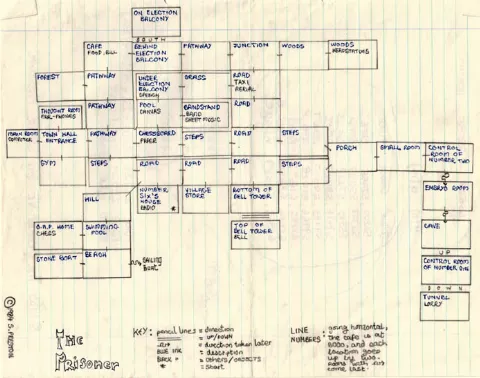 ON ELECTION
BALCONY
SOUTH
CAFE
BEHIND
ELECTION
BALCONY
PATHWAY
JUNCTION
WOODS
WOODS
FOREST
PATHWAY
UNDER
ELECTION
BALCONY
SPEECH
GRASS
ROAD
TAXI
AERIAL
THOUGHT ROOM
EAR-PHONES
PATHWAY
POOL
BANDSTAND
BAND
SHEET MUSIC
ROAD
MAIN ROOM
COMPUTER
TOWN HALL
ENTRANCE
PATHWAY
CHESSBOARD
STEPS
ROAD
STEPS
PORCH
SMALL ROOM
CONTROL
ROOM OF
NUMBER TWO
GYM
STEPS
ROAD
ROAD
ROAD
STEPS
HILL
NUMBER
SIX'S
HOUSE
RADIO *
VILLAGE
STORE
BOTTOM OF
BELL TOWER
EMBRYO ROOM
O.A.P. HOME
CHESS
SWIMMING
POOL
TOP OF
BELL TOWER
BELL
CAVE
STONE BOAT
BEACH
SAILING
BOAT
UP
CONTROL ROOM
OF NUMBER ONE
DOWN
TUNNEL
LORRY
THE
PRISONER
KEY:
pencil lines = direction
= UP/DOWN
= direction taken later
BLUE INK = description
BLACK " = OTHERS/OBJECTS
* = Start
LINE
NUMBERS:
going horizontal,
the cafe is at
6000, and each
location goes
up by
rooms with
come last.